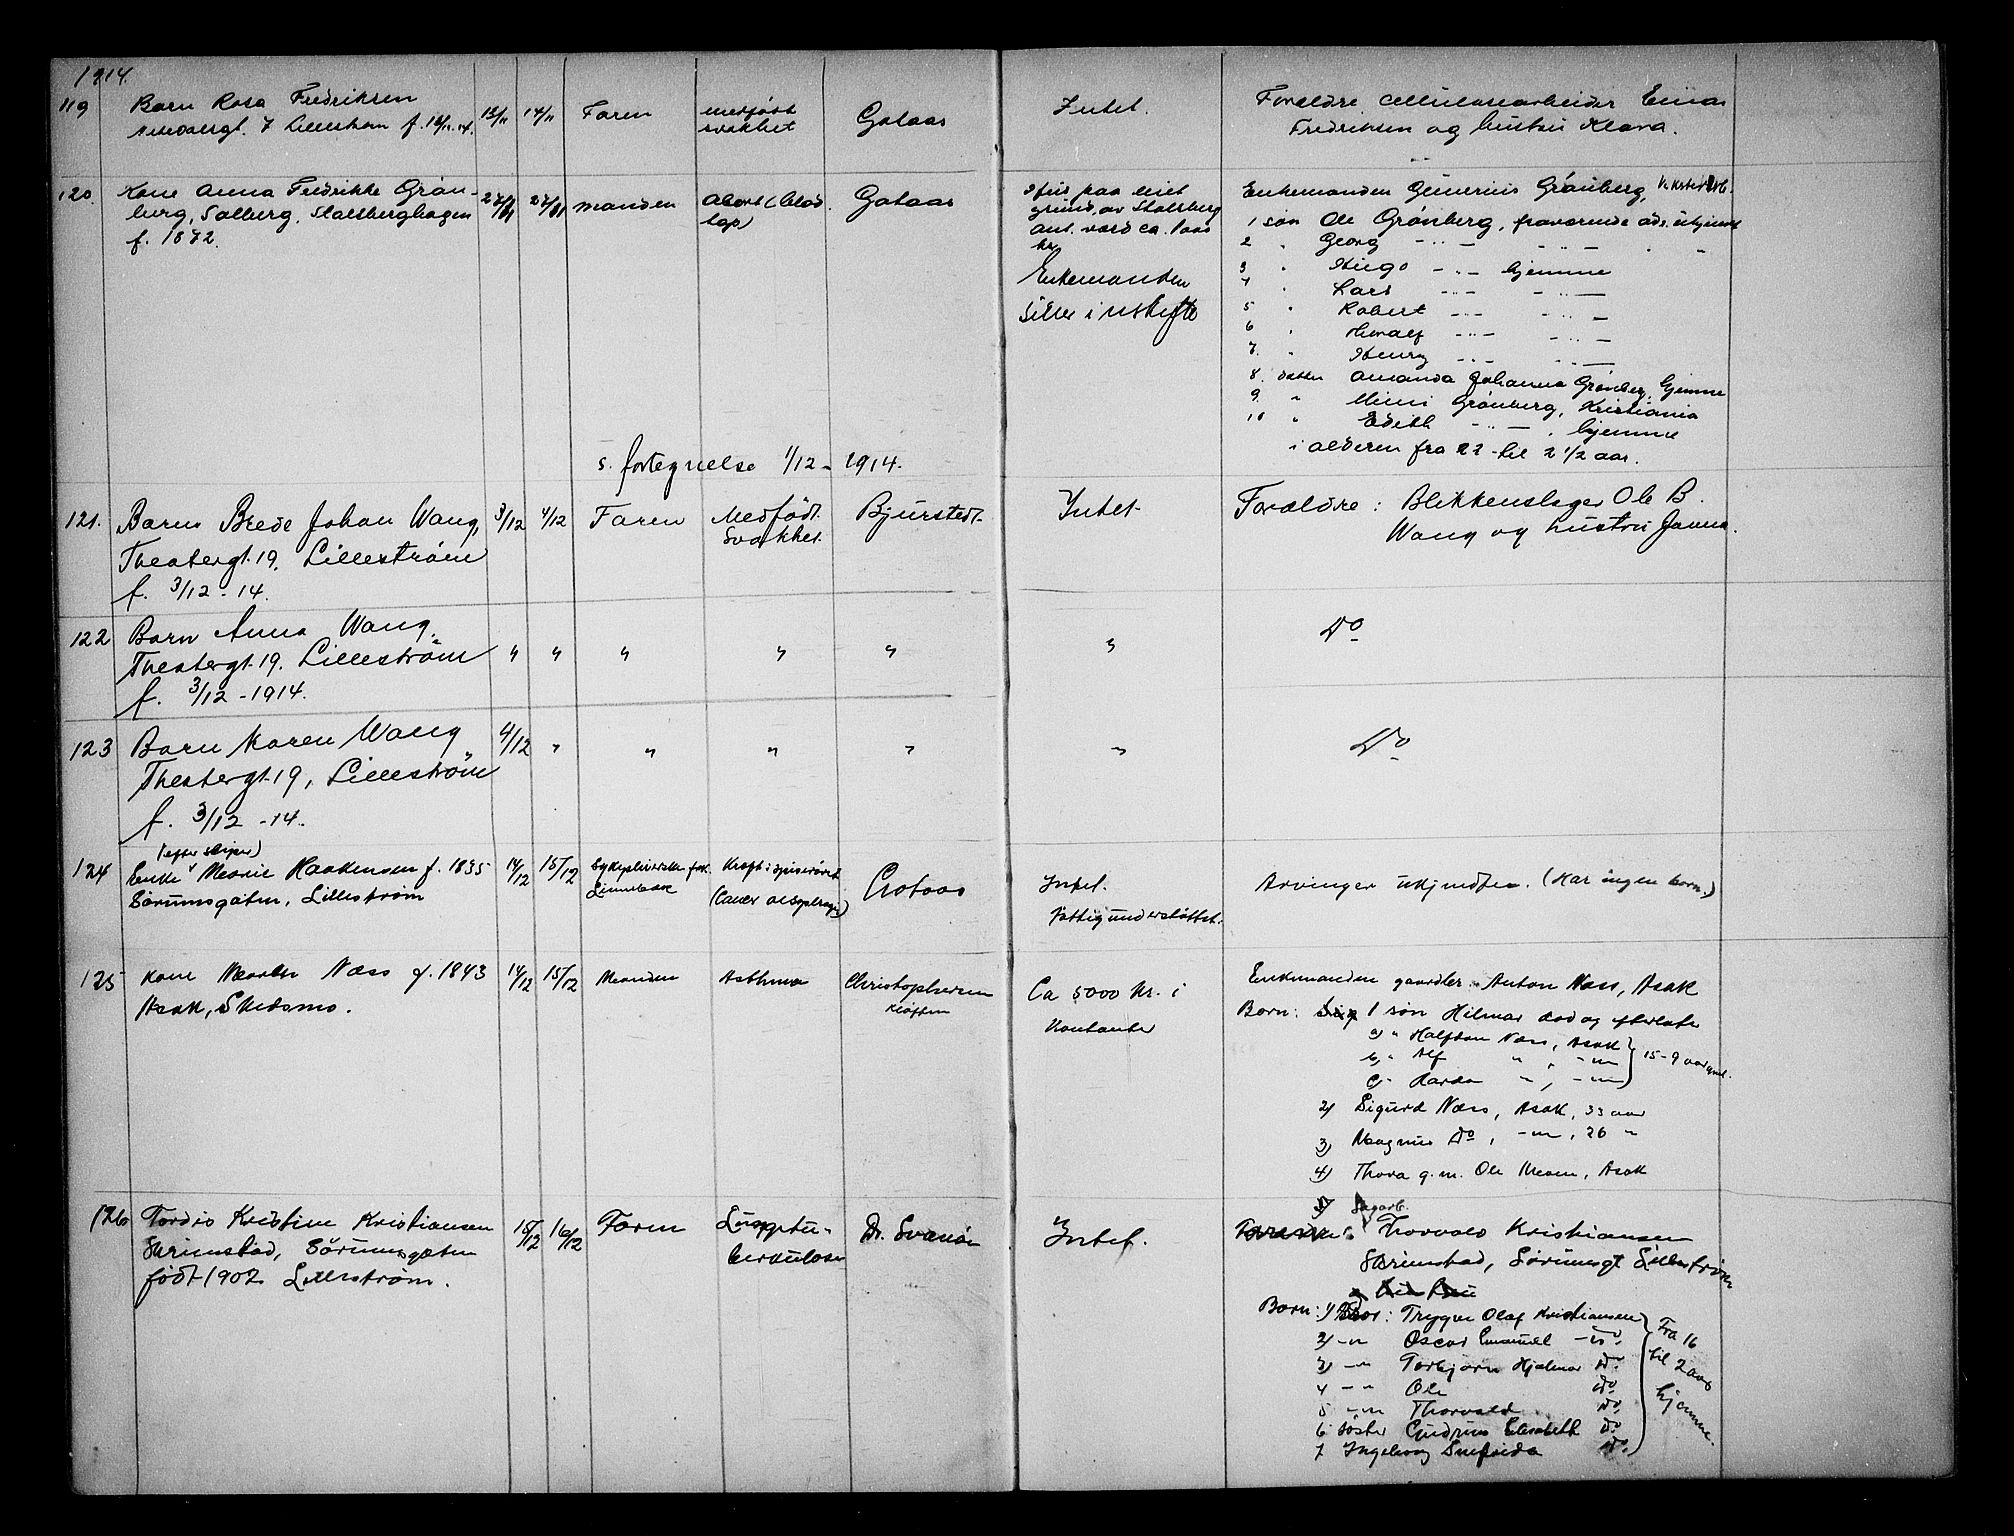 1914.
119 Barn Rosa Fredriksen 13/11 14/11 Faren medfødt Gotaas Intet. Forældre cellulosearbeider Einar
7 Lillestrøm f. 12/11-14. svakhet Fredriksen og hustru Klara.
120. Kone Anna Fredrikke Grøn- 27/11 27/11 manden Abort (blod Gotaas
berg, Solberg, Stalsberghagen tap)
f. 1872.
paa leiet
grund av Stalsberg
ant. værd ca. 1000
kr.
Enkemanden
sitter i uskifte
Enkemanden Gunerius Grønberg,
1 søn Ole Grønberg, fraværende adr. ukjendt
2 " Georg -"- -"-
3 " Hugo -"- hjemme
4 " Lars -"- -"-
5 " Robert -"- -"-
6 " -"- -"-
7. " Henry -"- -"-
8. datter Amanda Johanna Grønberg, hjemme
9. " Mimi Grønberg, Kristiania
10 " Edith -"-, hjemme
i alderen fra 22 til 2 1/2 aar.
s. fortegnelse 1/12 - 1914.
121. Barn Brede Johan Wang, 3/12 4/12 Faren Medfødt Bjurstedt. Intet Forældre: Blikkenslager Ole B.
Theatergt. 19. Lillestrøm Svakhet. Wang og hustru Janna.
f. 3/12 - 14.
122 Barn Anna Wang.
Theatergt. 19. Lillestrøm " " " " " " Do
f. 3/12 - 1914.
123 Barn Karen Wang 4/12 " " " " " Do
Theatergt. 19, Lillestrøm
f. 3/12 - 14.
124 Enke Marie Haakensen f. 1835 14/12 15/12 Sykepleierske frk. Kræft i spiserøret Gotaas Intet. Arvinger ukjendte. (Har ingen born.)
Sørumsgaten, Lillestrøm (Cancer oesophagi) Fattigunderstøttet.
125 Kone Maren Næss f. 1843 14/12 15/12 Manden Asthma Christophersen Ca 5000 kr. i
Asak, Skedsmo. Kløften Kontanter
Enkemanden gaardbr. Anton Næss, Asak
Born: 1 søn Hilmar død og efterlater
a) " Halfdan Næss, Asak
b) " Alf " , -"- } 15-9 aar gml.
c) " Harda " , -"-
2) Sigurd Næss, Asak, 33 aar
3) Magnus Do, -"-, 26 "
4) Thora g.m. Ole Moen, Asak
126 Tordis Kristine Kristiansen 15/12 16/12 Faren Lungetu- Dr. Svanøe Intet.
Skrimstad, Sørumsgaten berkulose
født 1907 Lillestrøm.
Sagarb.
Thorvald Kristiansen
Skrimstad, Sørumsgt Lillestrøm
Born: 1) Bror: Trygve Olaf Kristiansen
2) -"- Oscar Emanuel -"-
3) -"- Torbjørn Hjalmar Do
4 -"- Ole Do
5 -"- Thorvald Do
6 søster Gudrun Elisabeth Do
7 Ingeborg Do.
Fra 16
til 2 aar
hjemme.